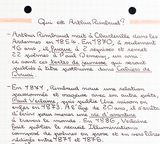 Qui est Arthur Rimbaud ?
- Arthur Rimbaud naît à Charleville dans les
Ardennes en 1854. En 1870, à seulement
16 ans, il fugue à 2 reprises et remet
22 poèmes à Paul Demeny, un ami.
ce sont ces textes de jeunesse qui seront
publiés à titre posthume dans Cahiers de
Douai.
- En 1871, Rimbaud noue une relation
passionnée et orageuse avec un autre poète,
Paul Verlaine, qui publie Une saison en
enfer en 1873. À l'âge de 21 ans, il cesse
d'écrire pour mener une vie d'aventures
à travers le monde. En 1886, Verlaine
fait publier le recueil Illuminations
composé de poèmes en prose et en vers libres
rédigés entre 1873 et 1875.